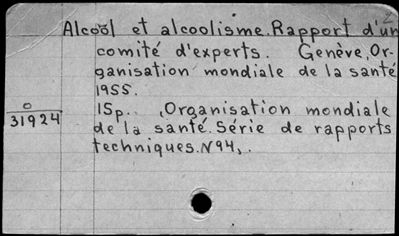 Alcool et alcoolisme. Rapport d'un
comité d'experts. Genève, Or-
ganisation mondiale de la santé
1955.
O
31924
15p. , Organisation mondiale
de la santé. Série de rapports
techniques. N94,.